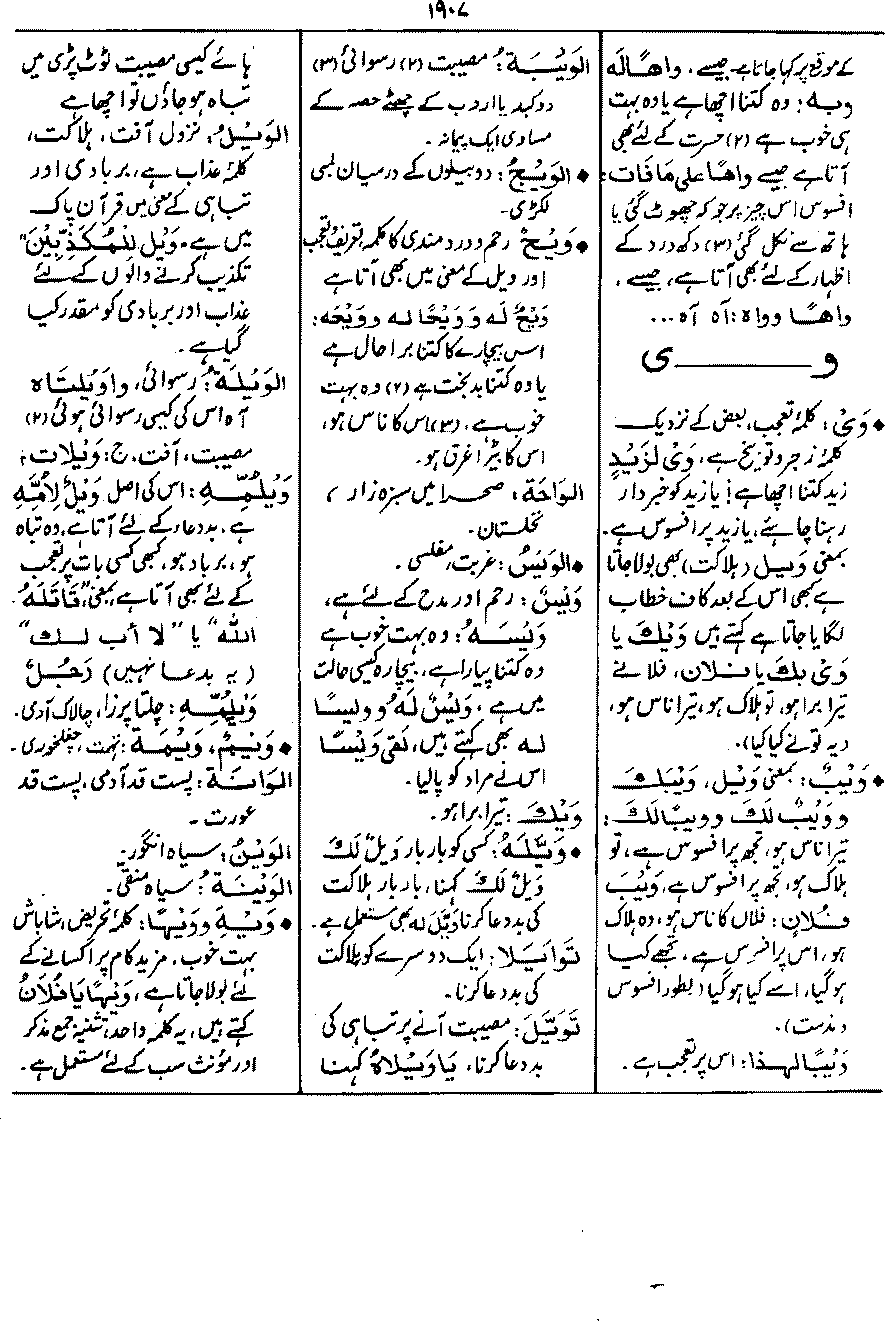 ۱۹۰۷
کے موقع پر کہا جاتا ہے۔ جیسے ، واھًا لَه
وبه : وہ کتنا اچھا ہے یا وہ بہت
ہی خوب ہے (۲) حسرت کے لئے بھی
آتا ہے جیسے واھًا علی مَا فَات :
افسوس اس چیز پر جو کہ چھوٹ گئی یا
ہاتھ سے نکل گئی (۳) دکھ درد کے
اظہار کے لئے بھی آتا ہے ، جیسے ،
واھًا وواہ : آہ آہ ...
و ——— ی
♦ وَیْ : کلمۂ تعجب ، بعض کے نزدیک
کلمۂ زجر و توبیخ ہے ، وَیْ لِزَیْدٍ
زید کتنا اچھا ہے ! یا زید کو خبردار
رہنا چاہئے ، یا زید پر افسوس ہے ۔
بمعنی وَیل (ہلاکت) بھی بولا جاتا
ہے کبھی اس کے بعد کاف خطاب
لگایا جاتا ہے کہتے ہیں وَیْكَ یا
وَیْ بِكَ یا فلان ، فلانے
تیرا برا ہو ، تو ہلاک ہو ، تیرا ناس ہو ،
(یہ تو نے کیا کیا) ۔
♦ وَیْبٌ : بمعنی وَیْل ، وَیْبَكَ
و وَیْبٌ لَكَ و وَیبًا لَكَ :
تیرا ناس ہو ، تجھ پر افسوس ہے ، تو
ہلاک ہو ، تجھ پر افسوس ہے ، وَیْبَ
فُلَانٍ : فلاں کا ناس ہو ، وہ ہلاک
ہو ، اس پر افسوس ہے ، تجھے کیا
ہو گیا ، اسے کیا ہو گیا (بطور افسوس
و مذمت) ۔
وَیْبًا لِهذا : اس پر تعجب ہے ۔
الوَیْبَة : مصیبت (۲) رسوائی (۳)
دو کید یا اردب کے چھٹے حصہ کے
مساوی ایک پیمانہ ۔
♦ الوَیْجُ : دو بیلوں کے درمیان لمبی
لکڑی ۔
♦ وَیْحٌ رحم و درد مندی کا کلمہ تعریف و تعجب
اور ویل کے معنی میں بھی آتا ہے
وَیْحٌ لَه وَ وَیْحًا له و وَیْحَه :
اس بیچارے کا کتنا برا حال ہے
یا وہ کتنا بدبخت ہے (۲) وہ بہت
خوب ہے ، (۳) اس کا ناس ہو ،
اس کا بیڑا غرق ہو ۔
الوَاحَة : صحرا میں سبزہ زار ،
نخلستان ۔
♦ الوَیْسُ : غربت ، مفلسی ۔
وَیْسٌ : رحم اور مدح کے لئے ہے ،
وَیْسَهُ : وہ بہت خوب ہے
وہ کتنا پیارا ہے ، بیچارہ کیسی حالت
میں ہے ، وَیْسٌ لَهُ و وَیسًا
له بھی کہتے ہیں ، لَقِیَ وَیْسًا
اس نے مراد کو پالیا ۔
وَیْكَ : تیرا برا ہو ۔
♦ وَیَّلَهُ : کسی کو بار بار وَیْلٌ لَكَ
وَیْلٌ لَكَ کہنا ، بار بار ہلاکت
کی بددعا کرنا وَیَّلَ لَه بھی مستعمل ہے ۔
تَوَایَلَا : ایک دوسرے کو ہلاکت
کی بددعا کرنا ۔
تَوَیَّلَ : مصیبت آنے پر تباہی کی
بددعا کرنا ، یَا وَیْلَاهُ کہنا
ہائے کیسی مصیبت ٹوٹ پڑی میں
تباہ ہو جاؤں تو اچھا ہے
الوَیْلُ : نزول آفت ، ہلاکت ،
کلمۂ عذاب ہے ، بربادی اور
تباہی کے معنی میں قرآن پاک
میں ہے ، وَیْلٌ لِلْمُكَذِّبِیْنَ"
تکذیب کرنے والوں کے لئے
عذاب اور بربادی کو مقدر کیا
گیا ہے ۔
الوَیْلَة : رسوائی ، وا وَیْلَتَاہ
آہ اس کی کیسی رسوائی ہوئی (۲)
مصیبت ، آفت ، ج : وَیْلَات ؛
وَیْلُمِّهِ : اس کی اصل وَیْلٌ لِأُمِّهِ
ہے ، بددعار کے لئے آتا ہے ، وہ تباہ
ہو ، برباد ہو ، کبھی کسی بات پر تعجب
کے لئے بھی آتا ہے ، بمعنی "قَاتَلَهُ
الله" یا "لا أب لك"
(یہ بدعا نہیں) رَجُلٌ
وَیْلُمِّهِ : چلتا پرزا ، چالاک آدمی ۔
♦ وَیْمٌ ، وَیْمَة : تہمت ، چغلخوری ۔
الوَانَة : پست قد آدمی ، پست قد
عورت ۔
الوَیْنُ : سیاہ انگور ۔
الوَیْنَة : سیاہ منقی ۔
♦ وَیْهِ و وَیْهًا : کلمۂ تحریض ، شاباش
بہت خوب ، مزید کام پر اکسانے کے
لئے بولا جاتا ہے ، وَیْهًا یَا فُلَانُ
کہتے ہیں ، یہ کلمہ واحد ، تثنیہ جمع مذکر
اور مؤنث سب کے لئے مستعمل ہے ۔